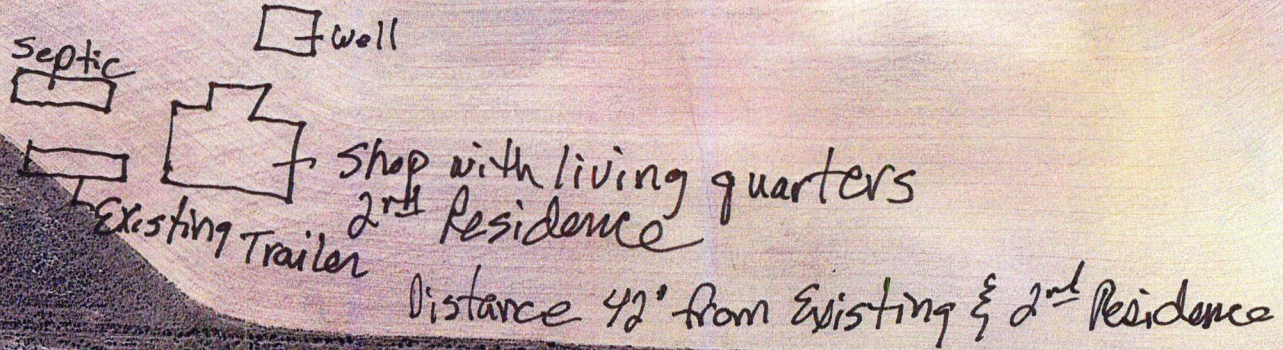 well
Septic
Shop with living quarters
2nd Residence
Existing Trailer
Distance 42' from Existing & 2nd Residence